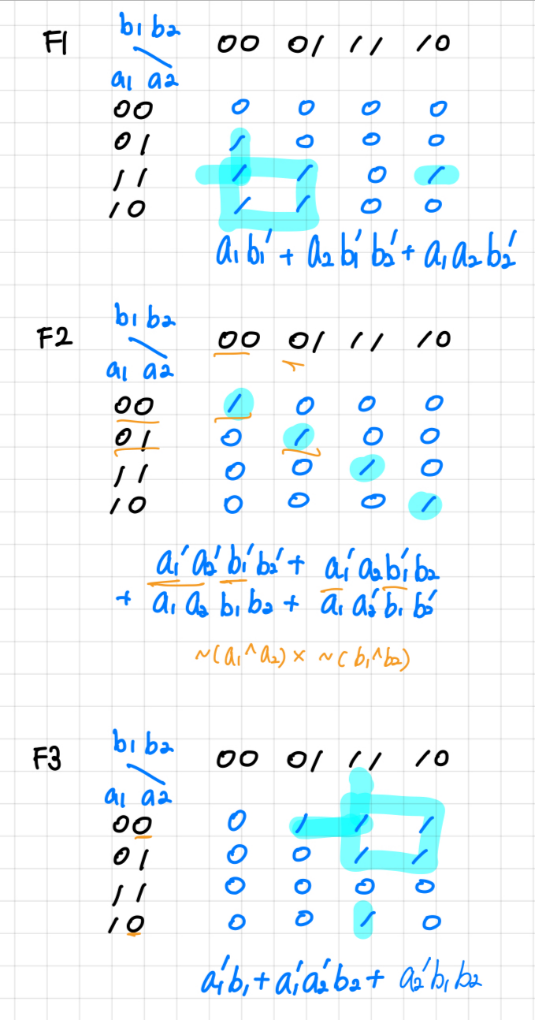 b1 b2
F1 00 01 11 10
a1 a2
00 0 0 0 0
01 1 0 0 0
11 1 1 0 1
10 1 1 0 0
a1b1′ + a2b1′b2′ + a1a2b2′
b1 b2
F2 00 01 11 10
1
a1 a2
00 1 0 0 0
01 0 1 0 0
11 0 0 1 0
10 0 0 0 1
a1′a2′b1′b2′ + a1′a2b1′b2
+ a1a2b1b2 + a1a2′b1b2′
~(a1^a2) × ~(b1^b2)
b1 b2
F3 00 01 11 10
a1 a2
00 0 1 1 1
01 0 0 1 1
11 0 0 0 0
10 0 0 1 0
a1′b1 + a1′a2′b2 + a2′b1b2